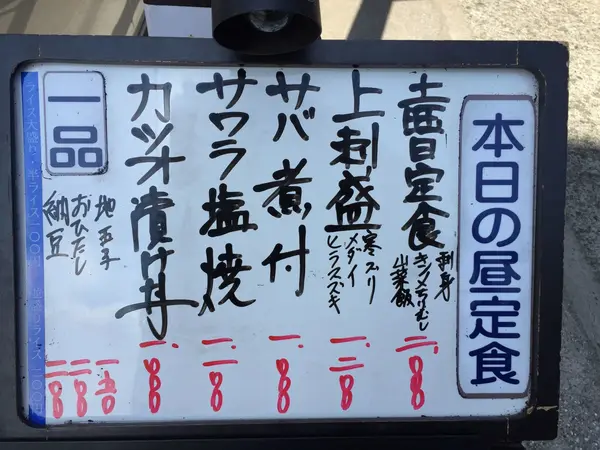 本日の昼定食
日定食
刺身
山菜飯
二.〇〇〇
上刺盛
寒ブリ
メダイ
ヒラスズキ
一.三〇〇
サバ煮付
一.〇〇〇
サワラ塩焼
一.一〇〇
カツオ漬け丼
一.〇〇〇
一品
地玉子
一五〇
おひたし
二〇〇
納豆
二〇〇
ライス大盛り・半ライス一〇〇円 並盛りライス二〇〇円